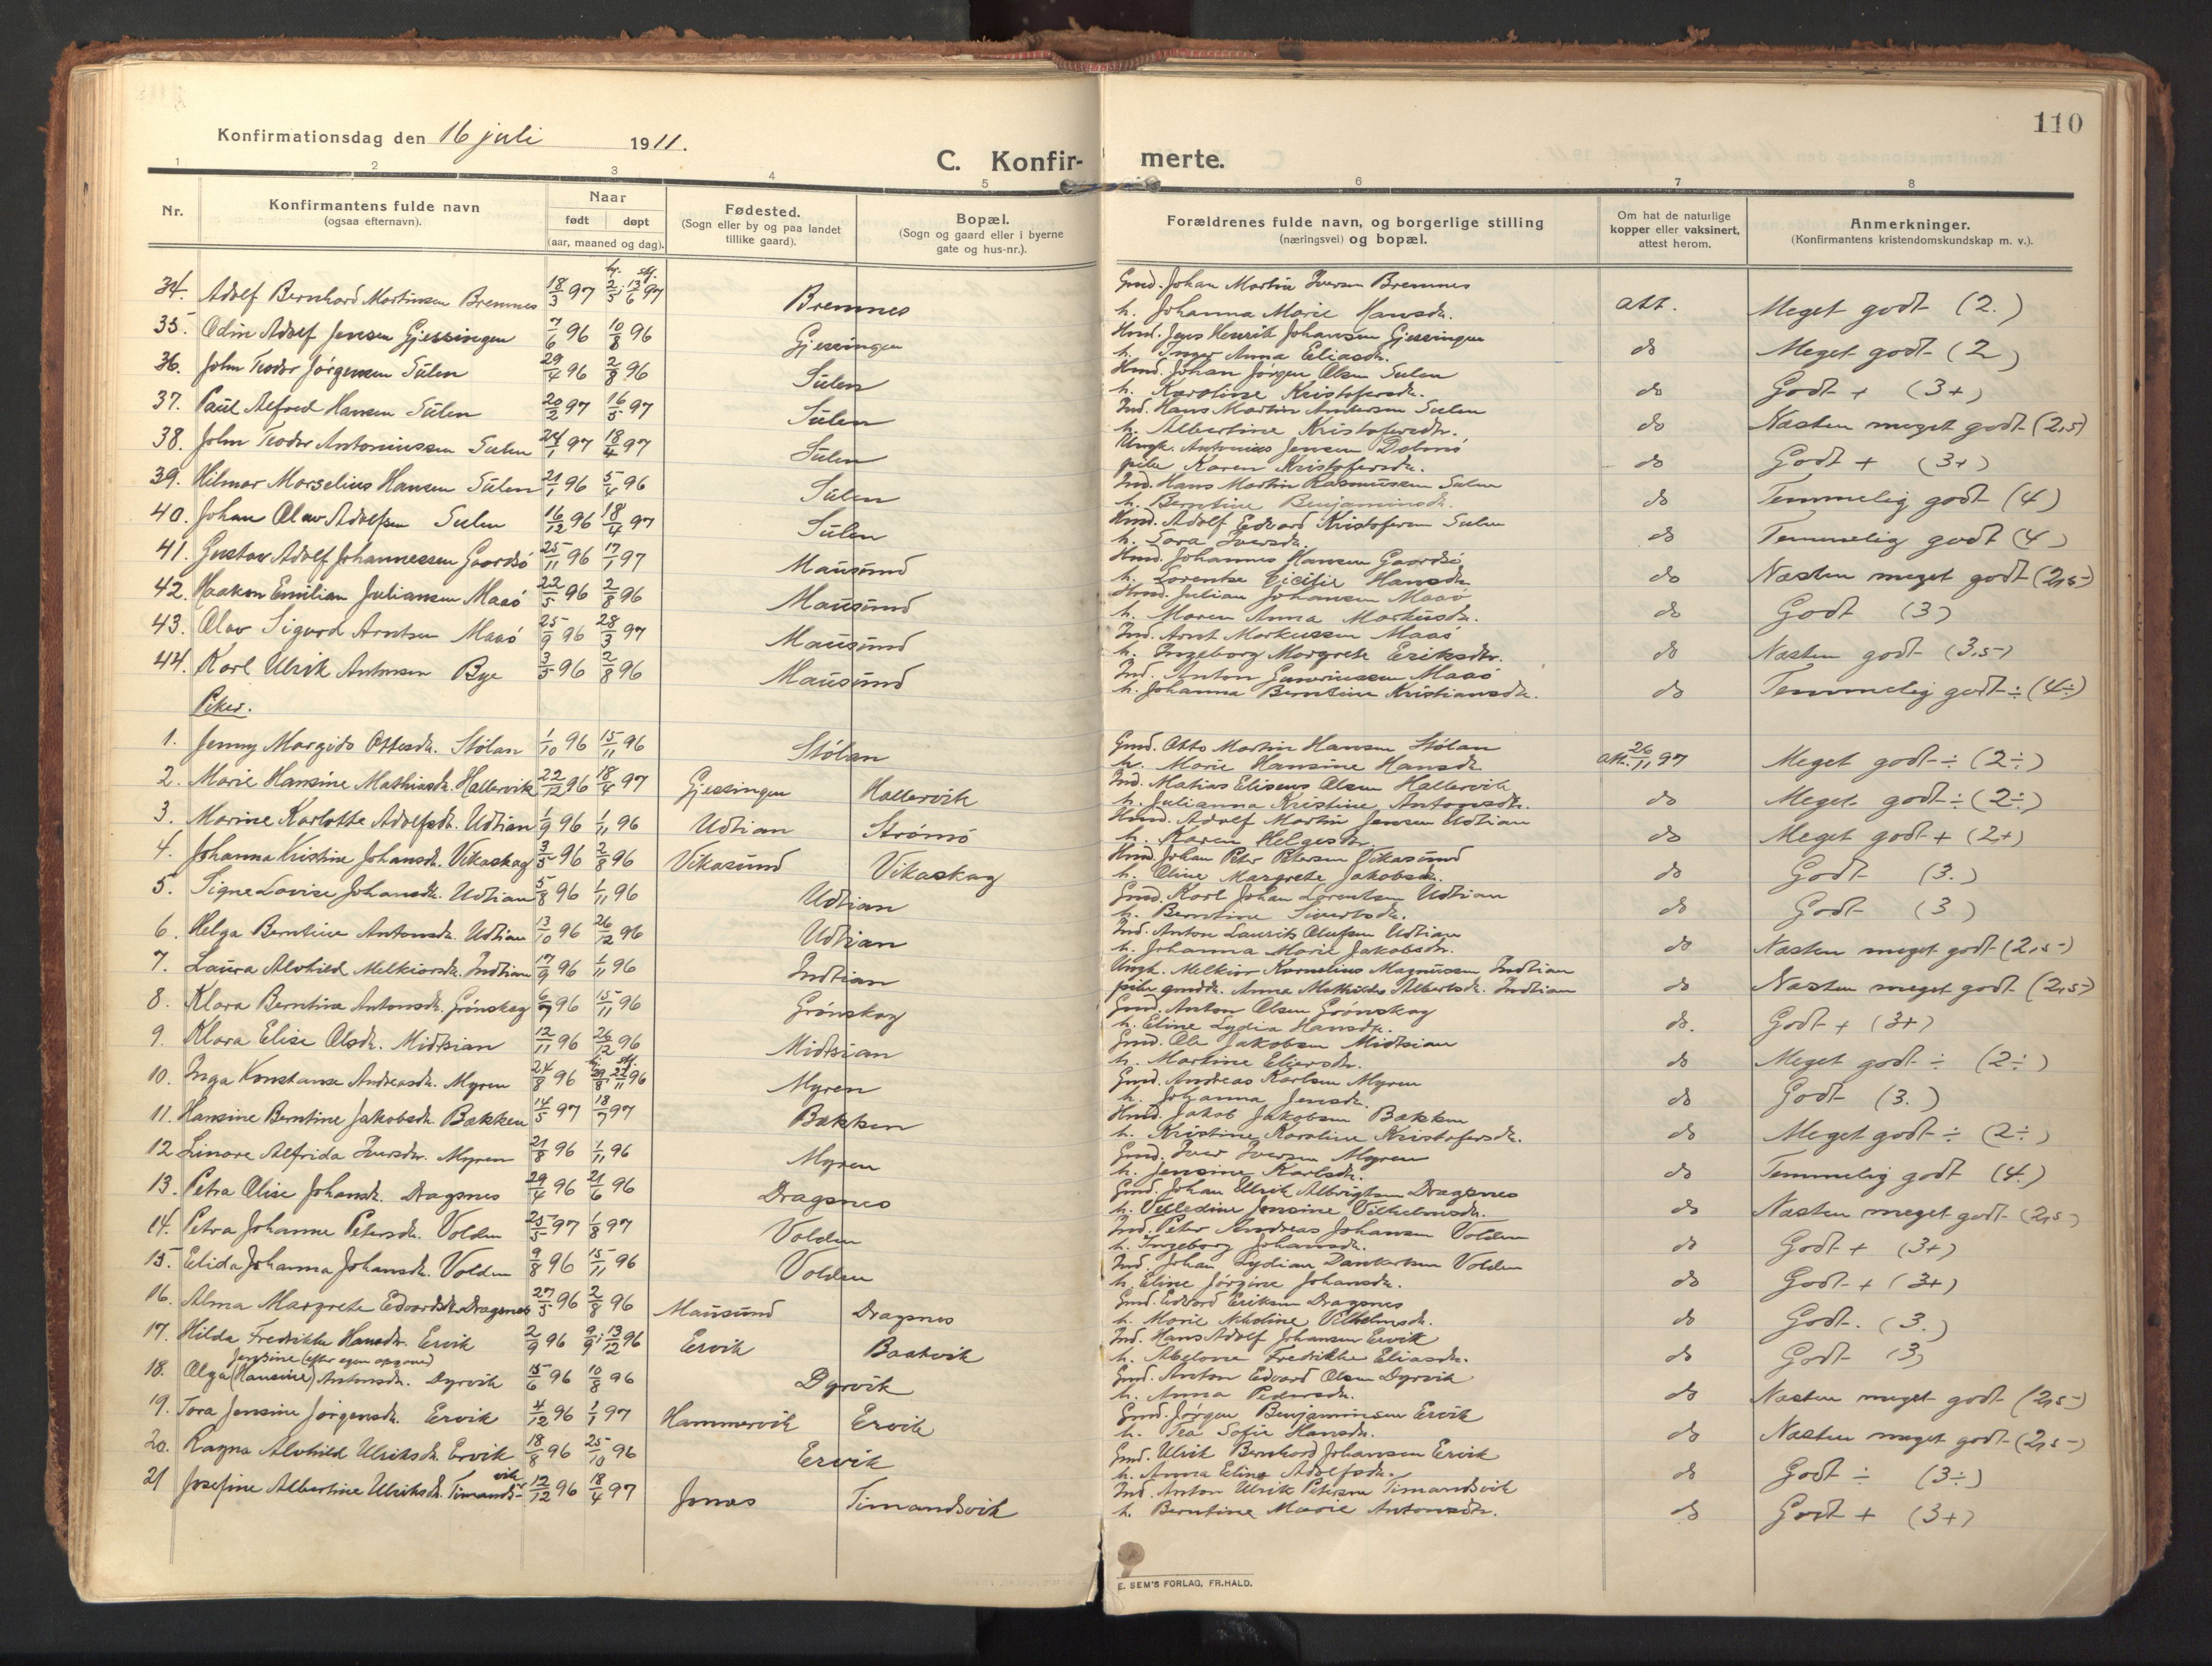 110
Konfirmationsdag den 16 juli 1911.
C. Konfir- merte.
1 2 3 4 5 6 7 8
Nr.
Konfirmantens fulde navn
(ogsaa efternavn).
Naar
født døpt
(aar, maaned og dag).
Fødested.
(Sogn eller by og paa landet
tillike gaard).
Bopæl.
(Sogn og gaard eller i byerne
gate og hus-nr.).
Forældrenes fulde navn, og borgerlige stilling
(næringsvei) og bopæl.
Om hat de naturlige
kopper eller vaksinert,
attest herom.
Anmerkninger.
(Konfirmantens kristendomskundskap m. v.).
34. Adolf Bernhard Martinsen Bremnes 18/3 97 hj. 2/5; stf. 13/6 97 Bremnes Gmd. Johan Martin Iversen Bremnes
h. Johanna Marie Hansdr. att. Meget godt (2.)
35. Odin Adolf Jensen Gjessingen 7/6 96 10/8 96 Gjessingen Hmd. Jens Henrik Johansen Gjessingen
h. Inger Anna Eliasdr. do Meget godt (2)
36. John Teodor Jørgensen Sulen 29/4 96 2/8 96 Sulen Hmd. Johan Jørgen Olsen Sulen
h. Karoline Kristofersdr. do Godt + (3+)
37. Paul Alfred Hansen Sulen 20/2 97 16/5 97 Sulen Ind. Hans Martin Andersen Sulen
h. Albertine Kristofersdr. do Næsten meget godt (2,5)
38. John Teodor Antoniussen Sulen 24/1 97 18/4 97 Sulen Ungk. Antonius Jensen Dolmø
pike Karen Kristofersdr. do Godt + (3+)
39. Hilmar Marselius Hansen Sulen 21/1 96 5/4 96 Sulen Ind. Hans Martin Rasmussen Sulen
h. Berntine Benjaminsdr. do Temmelig godt (4)
40. Johan Olav Adolfsen Sulen 16/12 96 18/4 97 Sulen Hmd. Adolf Edvard Kristofersen Sulen
h. Sara Iversdr. do Temmelig godt (4)
41. Gustav Adolf Johannessen Gaardsø 25/11 96 17/1 97 Mausund Hmd. Johannes Hansen Gaardsø
h. Lorentse Hansdr. do Næsten meget godt (2,5-)
42. Haakon Emilian Juliansen Maaø 22/5 96 2/8 96 Mausund Hmd. Julian Johansen Maaø
h. Maren Anna Markusdr. do Godt (3)
43. Olav Sigurd Arntsen Maaø 25/9 96 28/3 97 Mausund Ind. Arnt Markussen Maaø
h. Ingeborg Margrete Eriksdtr. do Næsten godt (3,5-)
44. Karl Ulrik Antonsen Bye 3/5 96 2/8 96 Mausund Ind. Anton Guneriussen Maaø
h. Johanna Berntine Kristiansdr. do Temmelig godt ÷ (4÷)
Piker.
1. Jenny Margido Ottesdr. Stølan 1/10 96 15/11 96 Stølan Gmd. Otto Martin Hansen Stølan
h. Marie Hansine Hansdr. att. 26/11 97 Meget godt ÷ (2÷)
2. Marie Hansine Mathiasdr. Hallervik 22/12 96 18/4 97 Gjessingen Hallervik Ind. Matias Eliseus Olsen Hallervik
h. Julianna Kristine Antonsdr. do Meget godt ÷ (2÷)
3. Marine Karlotte Adolfsdr. Udtian 1/9 96 1/11 96 Udtian Strømø Hmd. Adolf Martin Jensen Udtian
h. Karen Helgesdr. do Meget godt + (2+)
4. Johanna Kristine Johansdr. Vikaskag 3/5 96 2/8 96 Vikasund Vikaskag Hmd. Johan Peter Petersen Vikasund
h. Oline Margrete Jakobsdr. do Godt (3.)
5. Signe Lovise Johansdr. Udtian 5/8 96 1/11 96 Udtian Gmd. Karl Johan Lorentsen Udtian
h. Berntine Sivertsdr. do Godt (3)
6. Helga Berntine Antonsdr. Udtian 13/10 96 26/12 96 Udtian Ind. Anton Laurits Olufsen Udtian
h. Johanna Marie Jakobsdr. do Næsten meget godt (2,5-)
7. Laura Alvhild Melkiorsdr. Indtian 17/9 96 1/11 96 Indtian Ungk. Melkior Kornelius Magnussen Indtian
pike gmddr. Anna Mathilde Albertsdr. Indtian do Næsten meget godt (2,5-)
8. Klara Berntine Antonsdr. Grønskag 6/9 96 15/11 96 Grønskag Gmd. Anton Olsen Grønskag
h. Eline Lydia Hansdr. do. Godt + (3+)
9. Klara Elise Olsdr. Midtsian 12/11 96 26/12 96 Midtsian Gmd. Ole Jakobsen Midtsian
h. Martine Eliersdr. do Meget godt ÷ (2÷)
10. Inga Konstanse Andreasdr. Myren 24/8 96 hj. 29/8; stf. 22/11 96 Myren Gmd. Andreas Karlsen Myren
h. Johanna Jensdr. do Godt (3.)
11. Hansine Berntine Jakobsdr. Bakken 14/5 97 18/7 97 Bakken Hmd. Jakob Jakobsen Bakken
h. Kristine Karoline Kristofersdr. do Meget godt ÷ (2÷)
12 Linore Alfrida Iversdr. Myren 21/8 96 1/11 96 Myren Gmd. Iver Iversen Myren
h. Jensine Karlsdr. do Temmelig godt (4.)
13. Petra Olise Johansdr. Dragsnes 29/4 96 21/6 96 Dragsnes Gmd. Johan Ulrik Albrigtsen Dragsnes
h. Jensine Vilhelmsdr. do Næsten meget godt (2,5-)
14. Petra Johanne Petersdr. Volden 25/5 97 1/8 97 Volden Ind. Peter Andreas Johansen Volden
h. Ingeborg Johansdr. do Godt + (3+)
15. Elida Johanna Johansdr. Volden 9/8 96 15/11 96 Volden Ind. Johan Lydian Dankertsen Volden
h. Eline Jørgine Johansdr. do Godt + (3+)
16. Alma Margrete Edvardsdr. Dragsnes 27/5 96 2/8 96 Mausund Dragsnes Gmd. Edvard Eriksen Dragsnes
h. Marie Nikoline Vilhelmsdr. do Godt. (3.)
17. Hilda Fredrikke Hansdr. Ervik 2/9 96 9/9; 13/12 96 Ervik Baatvik Ind. Hans Adolf Johansen Ervik
h. Abelone Fredrikke Eliasdr. do Godt (3)
Jensine (efter egen opgave)
18. Olga (Hansine) Antonsdr. Dyrvik 15/6 96 10/8 96 Dyrvik Gmd. Anton Edvard Olsen Dyrvik
h. Anna Pedersdr. do Næsten meget godt (2,5-)
19. Tora Jensine Jørgensdr. Ervik 4/12 96 1/1 97 Hammervik Ervik Gmd. Jørgen Benjaminsen Ervik
h. Tea Sofie Hansdr. do Næsten meget godt (2,5-)
20. Ragna Alvhild Ulriksdr. Ervik 18/8 96 25/10 96 Ervik Gmd. Ulrik Bernhard Johansen Ervik
h. Anna Eline Adolfsdr. do Godt ÷ (3÷)
21 Josefine Albertine Ulriksdr. Timandsvik 12/12 96 18/4 97 Jonas Timandsvik Ind. Anton Ulrik Petersen Timandsvik
h. Berntine Marie Antonsdtr. do Godt + (3+)
E. SEM'S FORLAG, FR.HALD.